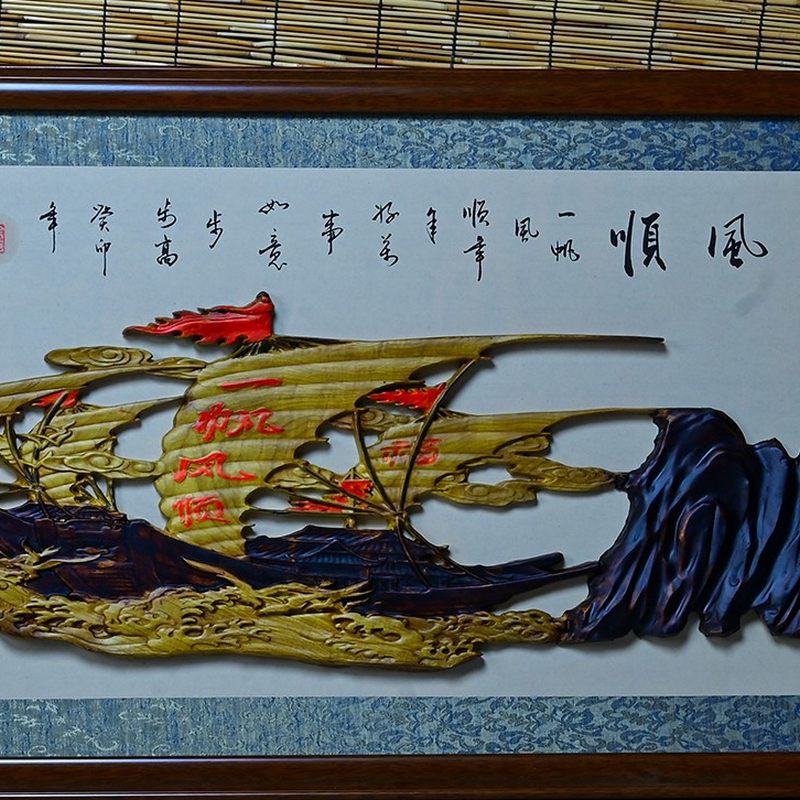 風
順
一帆
風
順年
年
好萬
事
如意
步
步高
癸卯
年
一帆风顺